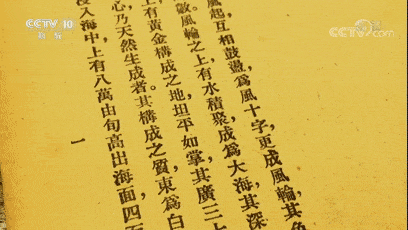 CCTV 10
CCTV.com
風起互相鼓盪,為風十字,更成風輪,其
風輪之上有水積聚,成為大海,其深
上有黃金構成之地坦平如掌,其廣三
心乃天然生成者。其構成之質,東為白
入海中上有八萬由旬高出海面四
一